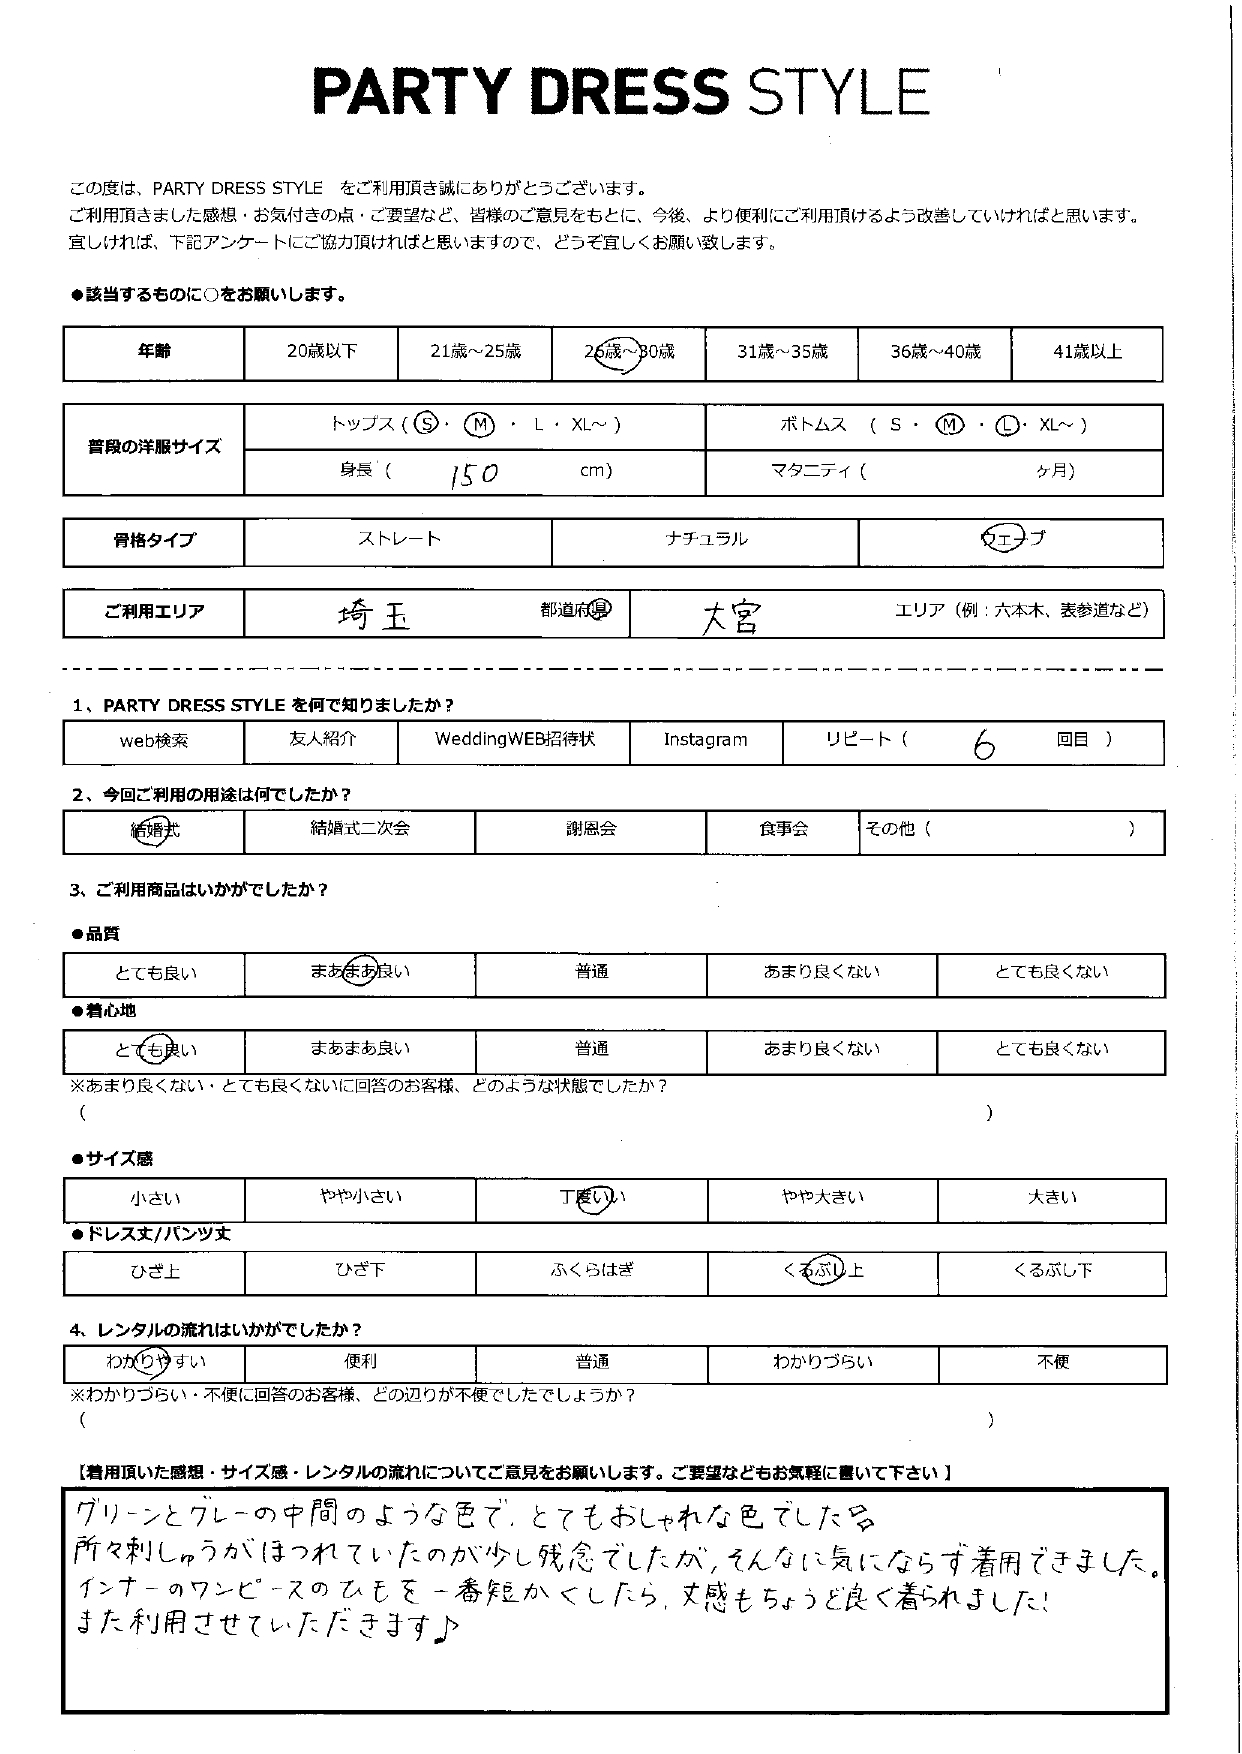 PARTY DRESS STYLE
この度は、PARTY DRESS STYLE をご利用頂き誠にありがとうございます。
ご利用頂きました感想・お気付きの点・ご要望など、皆様のご意見をもとに、今後、より便利にご利用頂けるよう改善していければと思います。
宜しければ、下記アンケートにご協力頂ければと思いますので、どうぞ宜しくお願い致します。
●該当するものに○をお願いします。
年齢 20歳以下 21歳～25歳 26歳～30歳 31歳～35歳 36歳～40歳 41歳以上
トップス ( S ・ M ・ L ・ XL～ ) ボトムス ( S ・ M ・ L ・ XL～ )
普段の洋服サイズ
身長 ( 150 cm) マタニティ ( ヶ月)
骨格タイプ ストレート ナチュラル ウェーブ
ご利用エリア 埼玉 都道府県 大宮 エリア（例：六本木、表参道など）
1、PARTY DRESS STYLE を何で知りましたか？
web検索 友人紹介 WeddingWEB招待状 Instagram リピート ( 6 回目 )
2、今回ご利用の用途は何でしたか？
結婚式 結婚式二次会 謝恩会 食事会 その他 ( )
3、ご利用商品はいかがでしたか？
●品質
とても良い まあまあ良い 普通 あまり良くない とても良くない
●着心地
とても良い まあまあ良い 普通 あまり良くない とても良くない
※あまり良くない・とても良くないに回答のお客様、どのような状態でしたか？
( )
●サイズ感
小さい やや小さい 丁度いい やや大きい 大きい
●ドレス丈/パンツ丈
ひざ上 ひざ下 ふくらはぎ くるぶし上 くるぶし下
4、レンタルの流れはいかがでしたか？
わかりやすい 便利 普通 わかりづらい 不便
※わかりづらい・不便に回答のお客様、どの辺りが不便でしたでしょうか？
( )
【着用頂いた感想・サイズ感・レンタルの流れについてご意見をお願いします。ご要望などもお気軽に書いて下さい】
グリーンとグレーの中間のような色で、とてもおしゃれな色でした
所々刺しゅうがほつれていたのが少し残念でしたが、そんなに気にならず着用できました。
インナーのワンピースのひもを一番短かくしたら、丈感もちょうど良く着られました!
また利用させていただきます♪